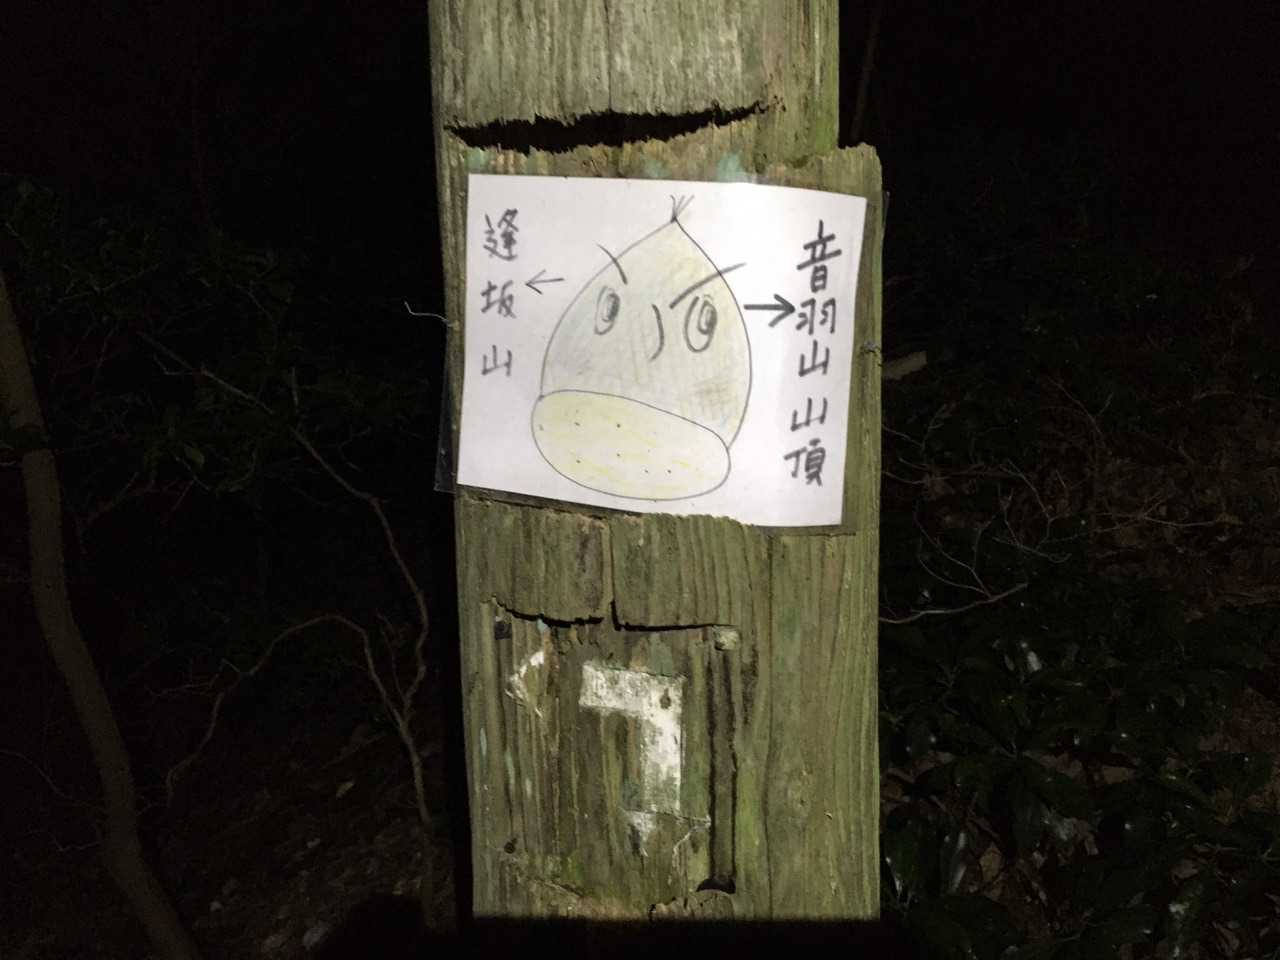 音羽山山頂
逢坂山